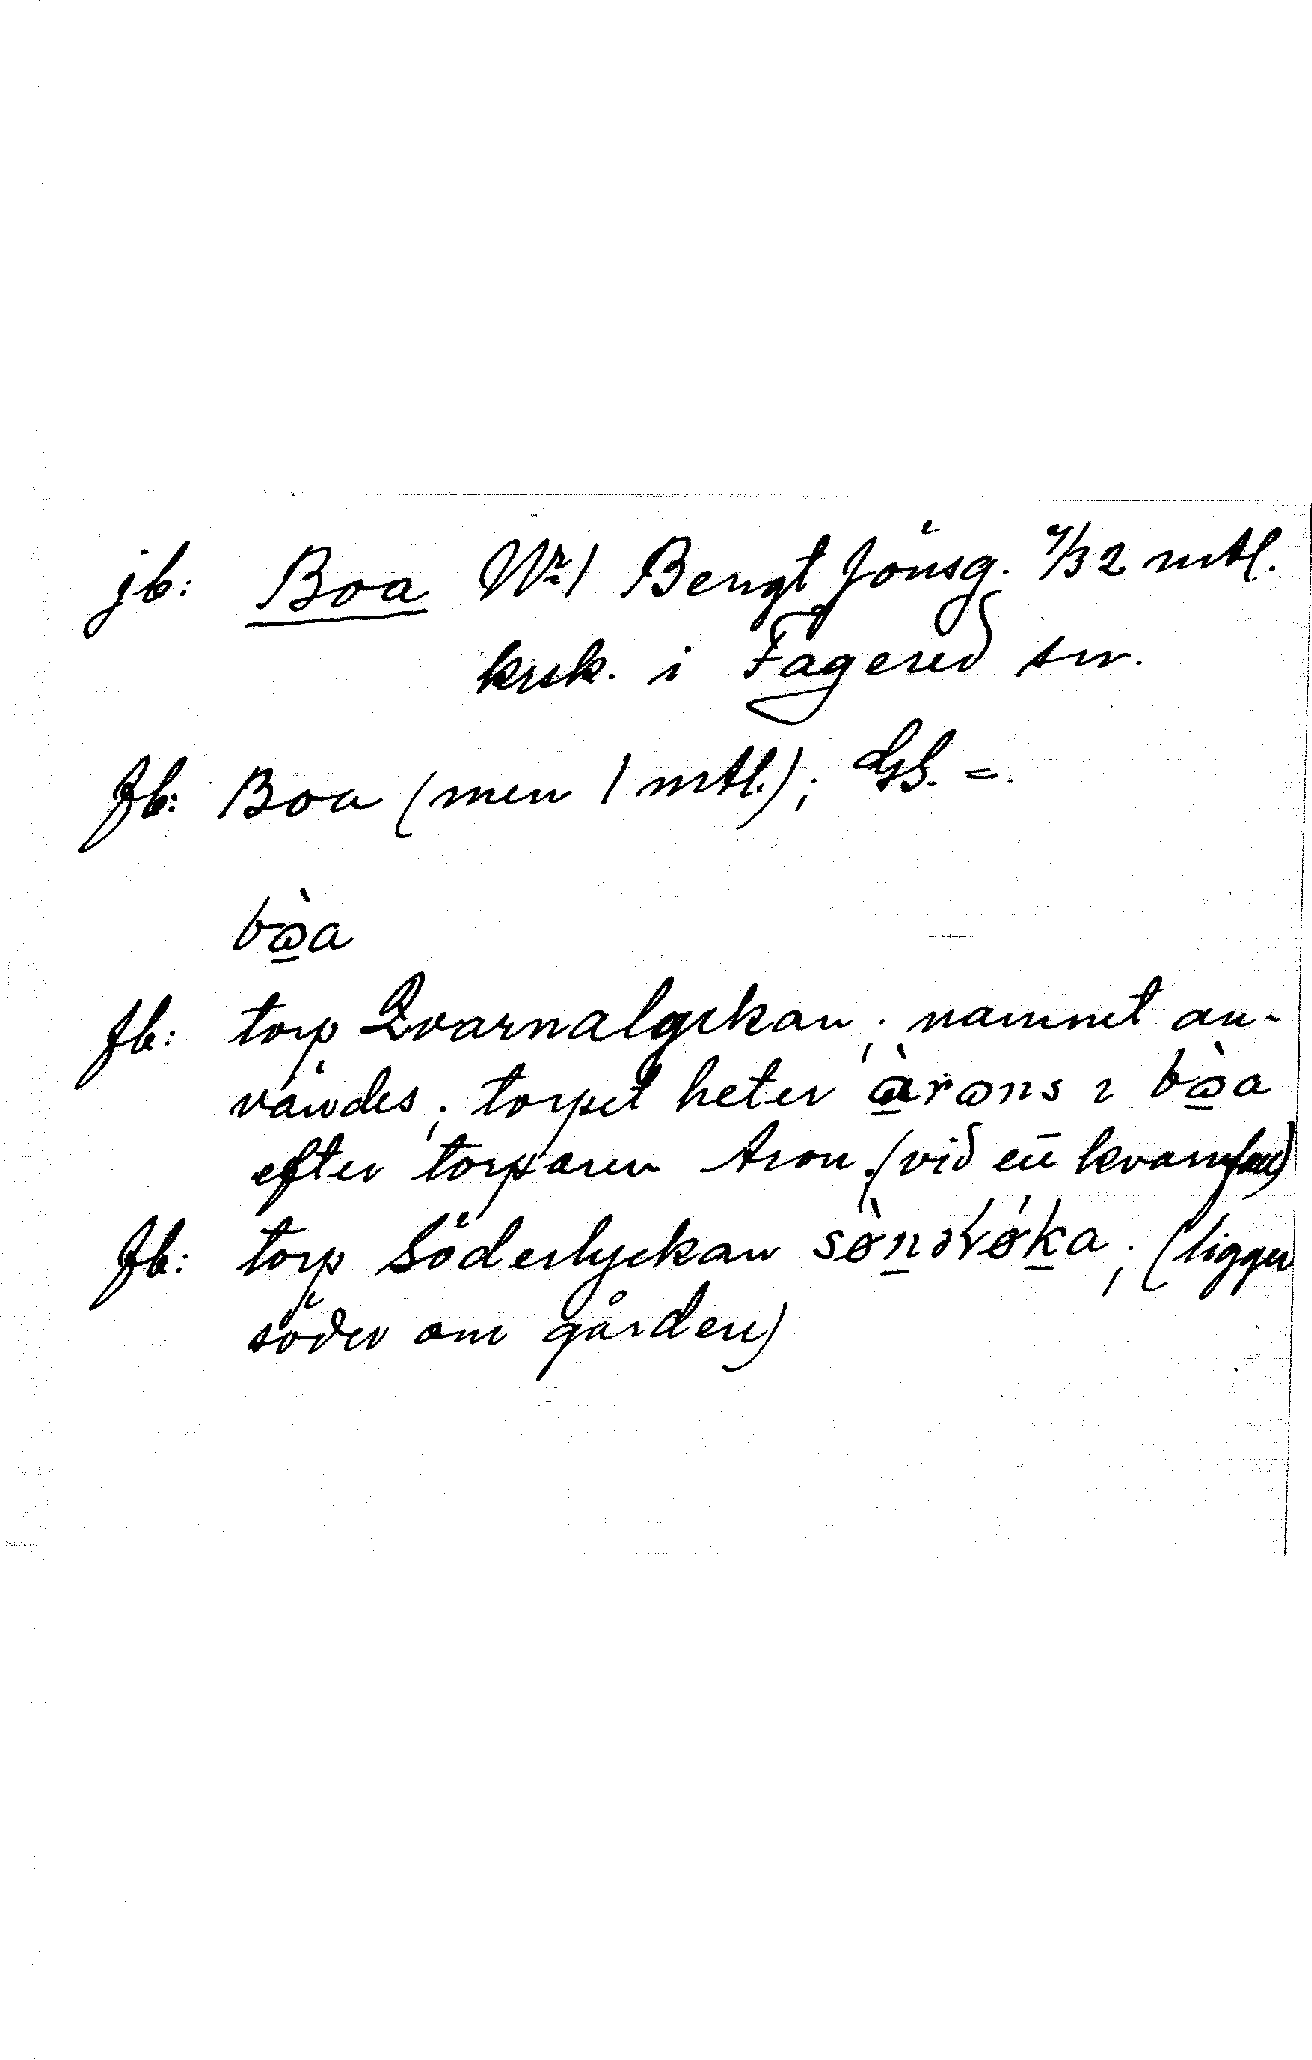 jb: Boa Nr 1 Bengt Jönsg. 7/32 mtl.
krsk. i Fagered sn.
fb: Boa (men 1 mtl.); GS. =.
bɷ̀a
fb: torp Qvarnalyckan; namnet an-
vändes; torpet heter àrɷns ı bɷ̀a
efter torparen Aron. (vid en
fb: torp Söderlyckan; (ligger
söder om gården)